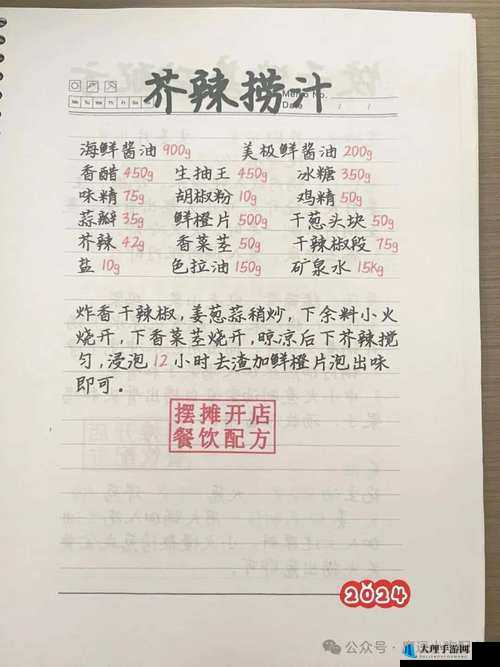 芥辣捞汁
Memo No.
Date / /
Mo Tu We Th Fr Sa Su
海鲜酱油 900g 美极鲜酱油 200g
香醋 450g 生抽王 450g 冰糖 350g
味精 75g 胡椒粉 10g 鸡精 50g
蒜瓣 35g 鲜橙片 500g 干葱头块 50g
芥辣 42g 香菜茎 50g 干辣椒段 75g
盐 10g 色拉油 150g 矿泉水 15kg
炸香干辣椒,姜葱蒜稍炒,下余料小火
烧开,下香菜茎烧开,晾凉后下芥辣搅
匀,浸泡12小时去渣加鲜橙片泡出味
即可.
摆摊开店
餐饮配方
2024
公众号·
大理手游网